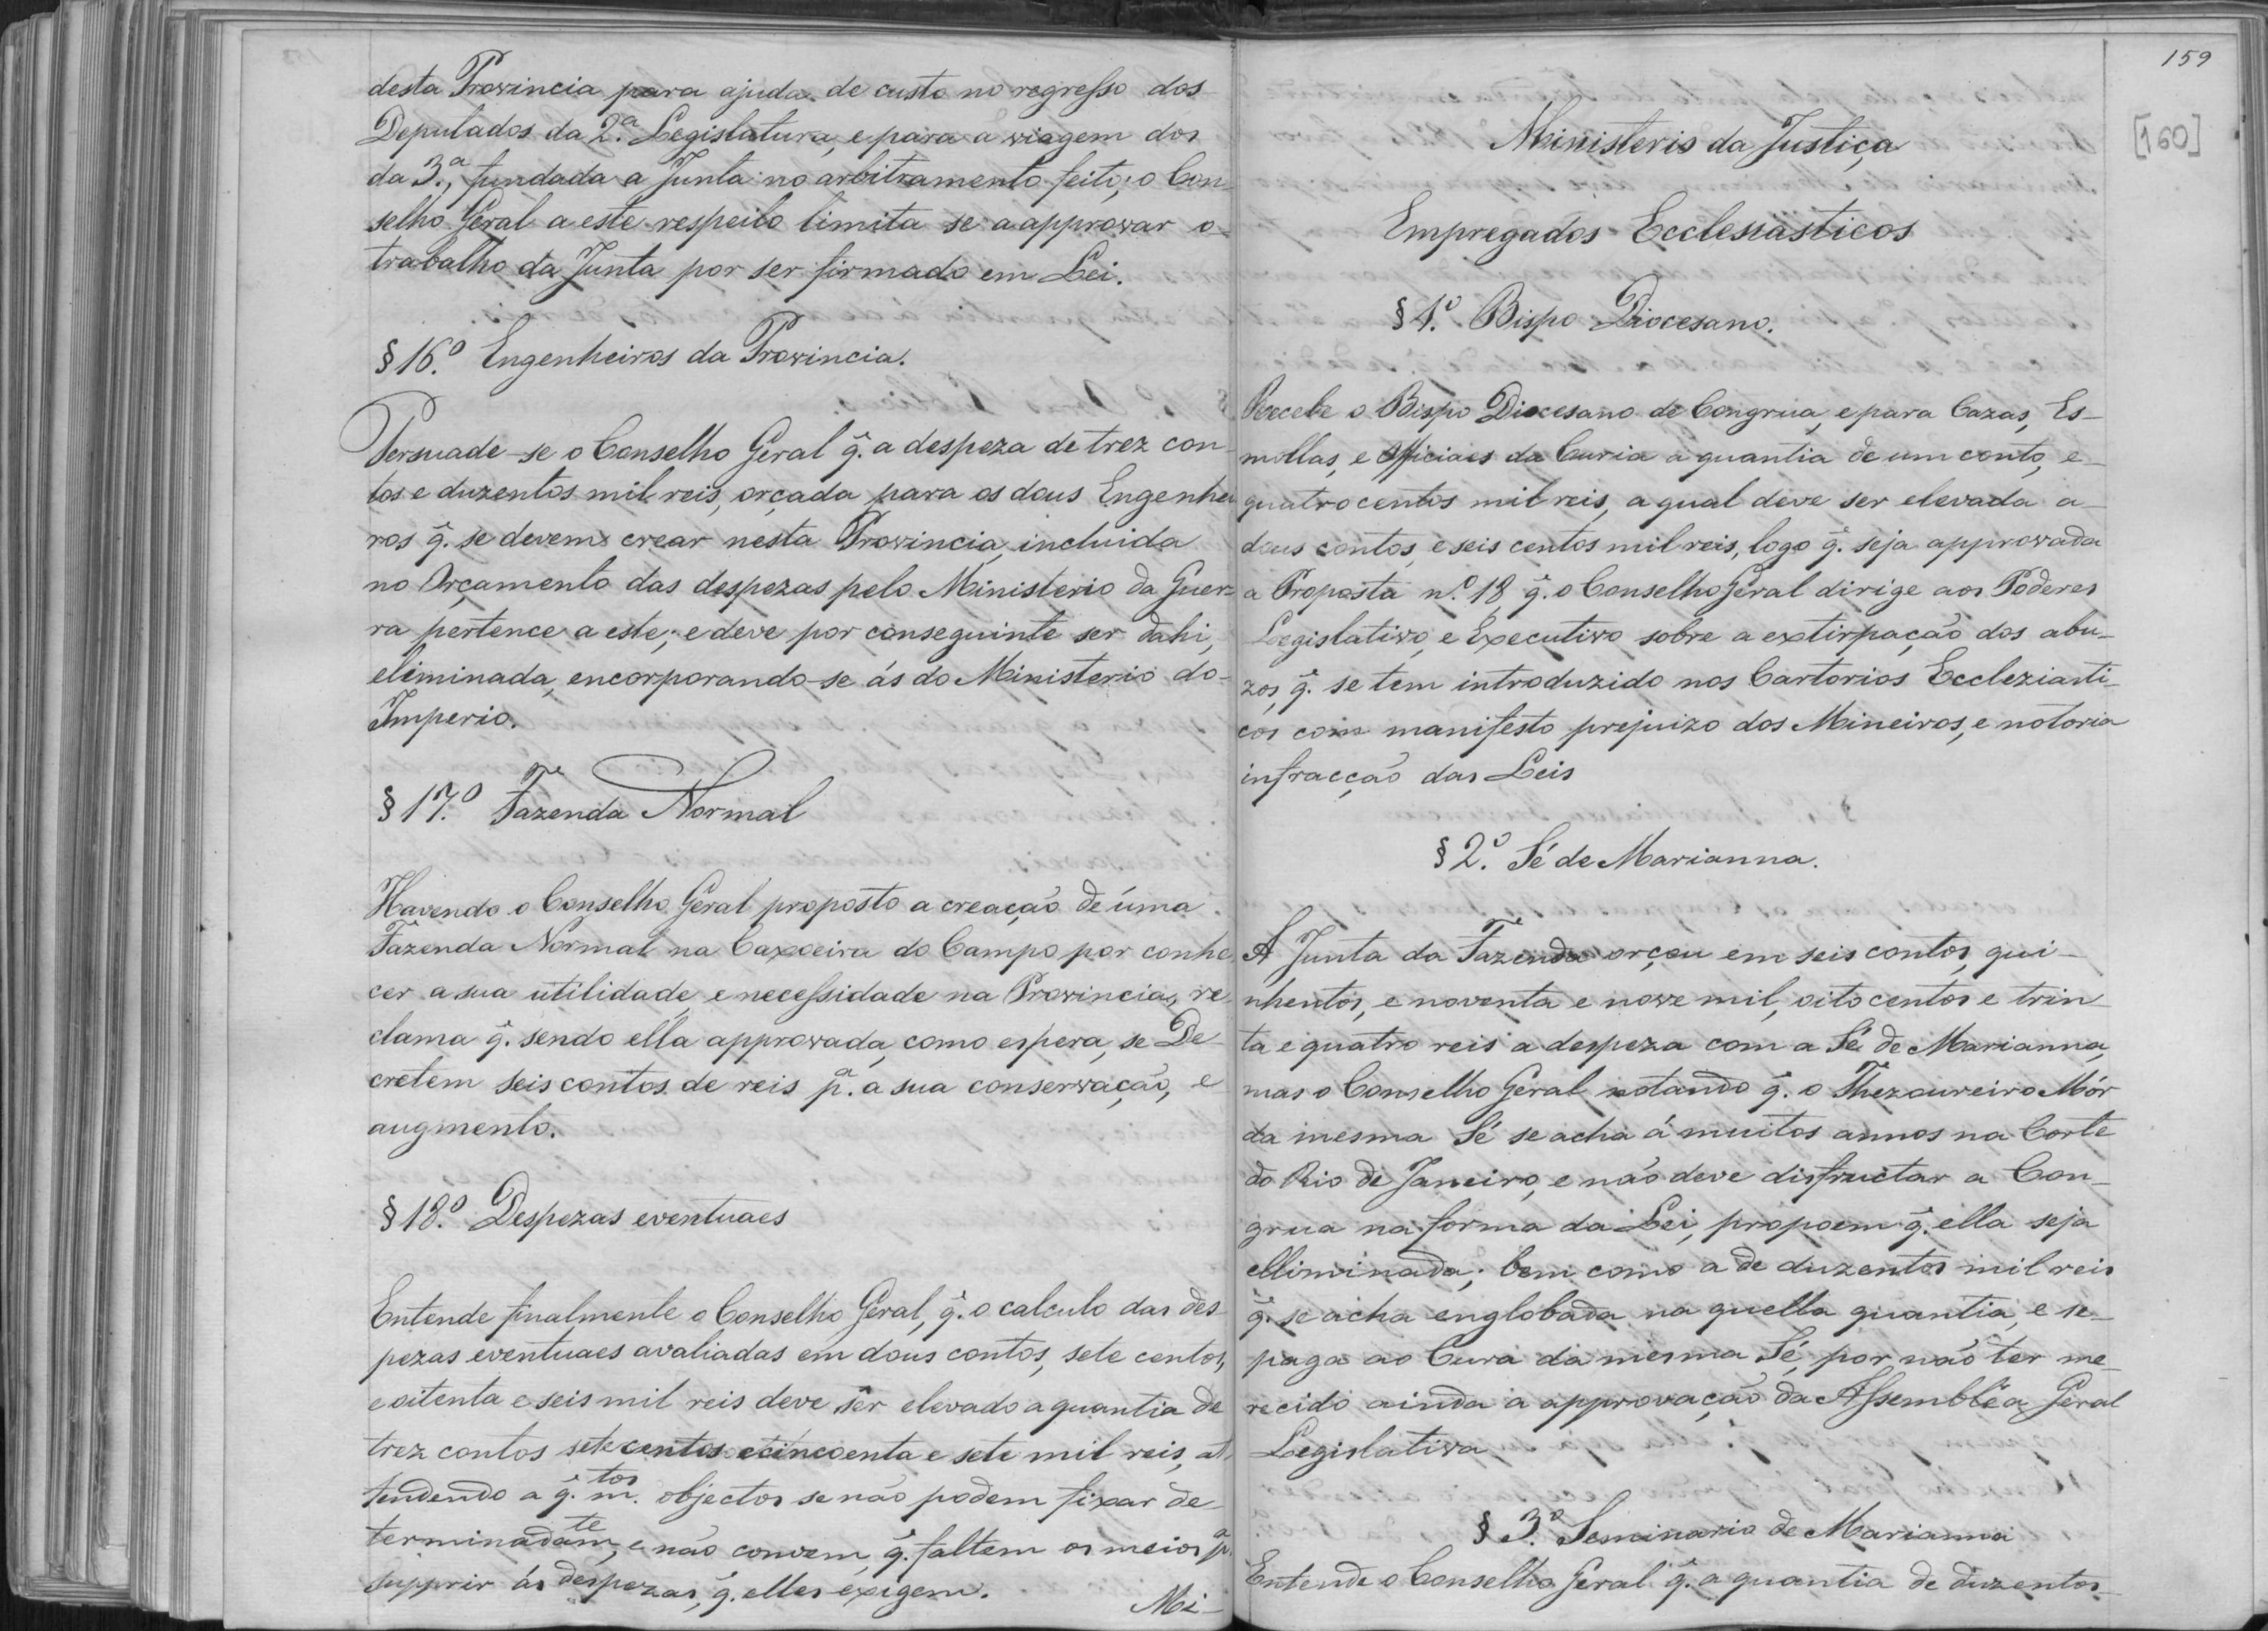 desta Provincia para ajuda de custo no regresso dos
Deputados da 2.ª Legislatura, e para a viagem dos
da 3.ª, fundada a Junta no arbitramento feito; o Con-
selho Geral a este respeito limita se a approvar o-
trabalho da Junta por ser firmado em Lei.
§ 16.º Engenheiros da Provincia.
Persuade-se o Conselho Geral q̃. a despeza de trez con-
tos e duzentos mil reis, orçada para os dous Engenhei
ros q̃. se devem crear nesta Provincia, incluida
no Orçamento das despezas pelo Ministerio da Guer-
ra pertence a este; e deve por conseguinte ser dahi,
eliminada, encorporando-se ás do Ministerio do-
Imperio.
§ 17.º Fazenda Normal
Havendo o Conselho Geral proposto a creação de uma
Fazenda Normal na Caxoeira do Campo por conhe
cer a sua utilidade, e necessidade na Provincia, re-
clama q̃. sendo ella approvada, como espera, se De-
cretem seis contos de reis pª. a sua conservação, e
augmento.
§ 18.º Despezas eventuaes
Entende finalmente o Conselho Geral, q̃. o calculo das des-
pezas eventuaes avaliadas em dous contos, sete centos,
e oitenta e seis mil reis deve ser elevado a quantia de
trez contos sete centos e cincoenta e sete mil reis, at-
tendendo a q̃. m.tos objectos se não podem fixar de-
terminadam.te, e não convem, q̃. faltem os meios pª.
supprir ás despezas, q̃. elles exigem.
Mi-
159
[160]
Ministerio da Justiça
Empregados Ecclesiasticos
§ 1.º Bispo Diocesano.
Percebe o Bispo Diocesano de Congrua, e para Cazas, Es-
mollas, e Officiaes da Curia a quantia de um conto, e-
quatrocentos mil reis, a qual deve ser elevada a-
dous contos, e seis centos mil reis, logo q̃. seja approvada
a Proposta n.º 18 q̃. o Conselho Geral dirige aos Poderes
Legislativo, e Executivo sobre a extirpação dos abu-
zos, q̃. se tem introduzido nos Cartorios Eccleziasti-
cos com manifesto prejuizo dos Mineiros, e notoria
infracção das Leis
§ 2.º Sé de Marianna.
A Junta da Fazenda orçou em seis contos, qui-
nhentos, e noventa e nove mil, oito centos e trin-
ta e quatro reis a despeza com a Sé de Marianna,
mas o Conselho Geral notando q̃. o Thezoureiro Mór
da mesma Sé se acha á muitos annos na Corte
do Rio de Janeiro, e não deve disfructar a Con-
grua na forma da Lei, propoem q̃. ella seja
elliminada; bem como a de duzentos mil reis
q̃. se acha englobada na quella quantia, e se-
paga ao Cura da mesma Sé, por não ter me-
recido ainda a approvação da Assemblêa Geral
Legislativa
§ 3.º Seminario de Marianna
Entende o Conselho Geral q̃. a quantia de duzentos-